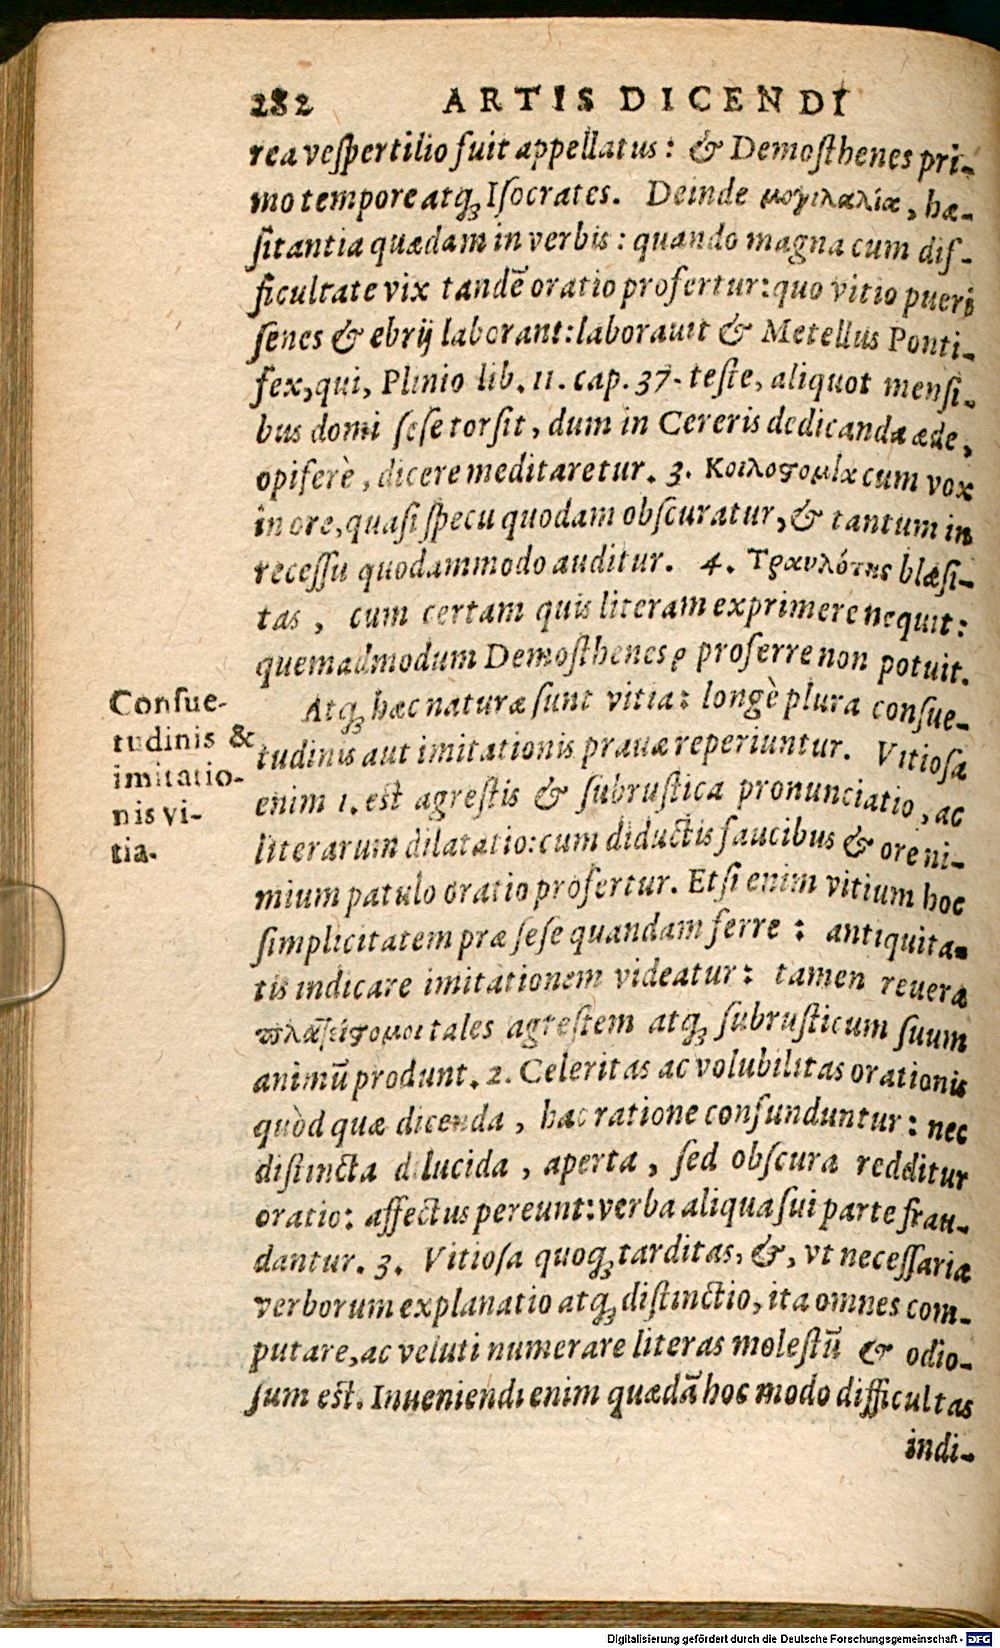 282 ARTIS DICENDI
rea veſpertilio fuit appellatus: & Demoſthenes pri-
mo tempore atq; Iſocrates. Deinde μογιλαλία, hæ-
ſitantia quædam in verbis: quando magna cum dif-
ficultate vix tandẽ oratio profertur: quo vitio pueri
ſenes & ebrij laborant: laborauit & Metellus Ponti-
fex, qui, Plinio lib. 11. cap. 37. teſte, aliquot menſi-
bus domi ſeſe torſit, dum in Cereris dedicanda æde,
opiferè, dicere meditaretur. 3. Κοιλοϛομία cum vox
in ore, quaſi ſpecu quodam obſcuratur, & tantum in
receſſu quodammodo auditur. 4. Τραυλότης blæſi-
tas, cum certam quis literam exprimere nequit:
quemadmodum Demoſthenes ρ proferre non potuit.
Atq; hæc naturæ ſunt vitia: longè plura conſue-
tudinis aut imitationis prauæ reperiuntur. Vitioſa
enim 1. eſt agreſtis & ſubruſtica pronunciatio, ac
literarum dilatatio: cum diductis faucibus & ore ni-
mium patulo oratio profertur. Etſi enim vitium hoc
ſimplicitatem præ ſeſe quandam ferre: antiquita-
tis indicare imitationem videatur: tamen reuera
tales agreſtem atq; ſubruſticum ſuum
animũ produnt. 2. Celeritas ac volubilitas orationis
quòd quæ dicenda, hac ratione confunduntur: nec
diſtincta dilucida, aperta, ſed obſcura redditur
oratio: affectus pereunt: verba aliqua ſui parte frau-
dantur. 3. Vitioſa quoq; tarditas, &, vt neceſſaria
verborum explanatio atq; diſtinctio, ita omnes com-
putare, ac veluti numerare literas moleſtũ & odio-
ſum eſt. Inueniendi enim quædã hoc modo difficultas
indi-
Conſue-
tudinis &
imitatio-
nis vi-
tia.
Digitalisierung gefördert durch die Deutsche Forschungsgemeinschaft - DFG